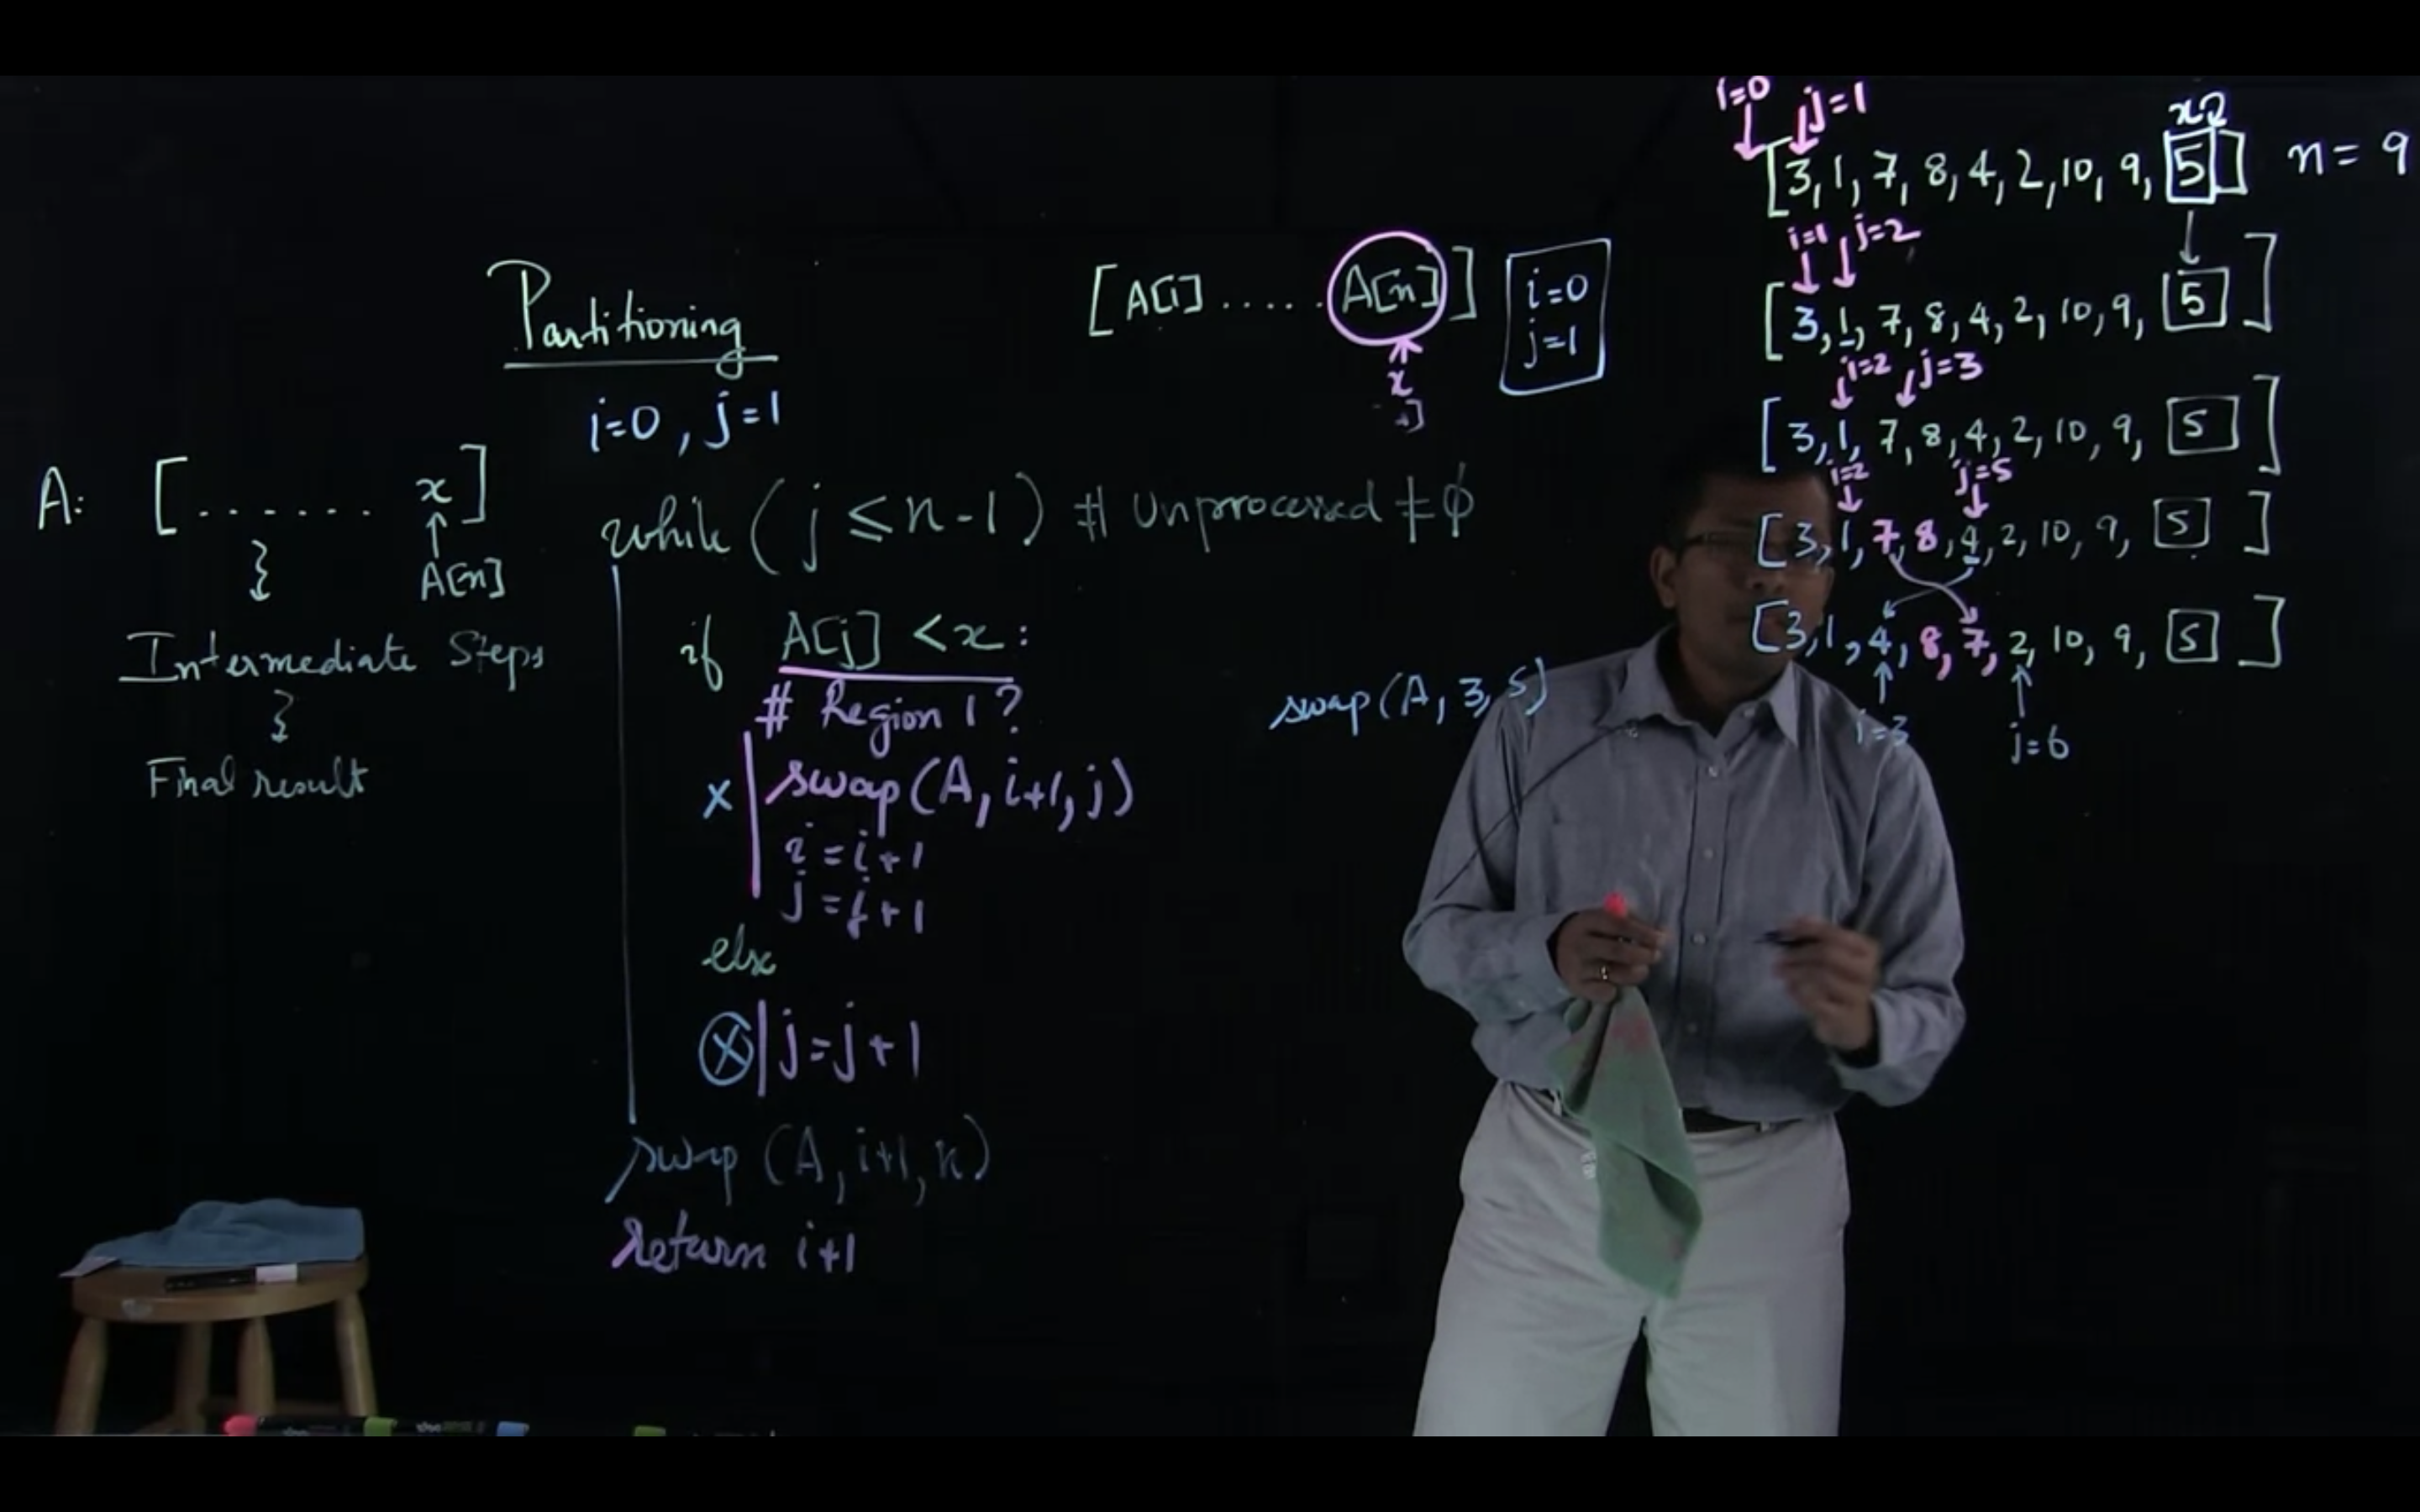 Partitioning
i=0, j=1
A: [....... x]
↑
A[n]
Intermediate Steps
Final result
while (j ≤ n-1) # Unprocessed ≠ ϕ
if A[j] < x:
# Region 1?
x | swap(A, i+1, j)
i = i+1
j = j+1
else
ⓧ | j = j+1
swap (A, i+1, n)
return i+1
[A[i] ..... A[n]]
x
i=0
j=1
swap(A, 3, 5)
i=0 j=1
[3, 1, 7, 8, 4, 2, 10, 9, 5] n = 9
i=1 j=2
[3, 1, 7, 8, 4, 2, 10, 9, 5]
i=2 j=3
[3, 1, 7, 8, 4, 2, 10, 9, 5]
i=2 j=5
[3, 1, 7, 8, 4, 2, 10, 9, 5]
[3, 1, 4, 8, 7, 2, 10, 9, 5]
i=3 j=6